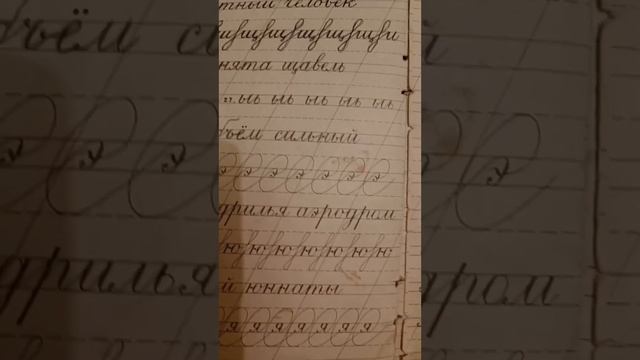 тный человек
щщщщщщщ
нята щавель
ыь ыь ыь ыь ыь
бъём сильный
э э э э э э э
дрилья аэродром
ю ю ю ю ю ю ю
й юннаты
я я я я я я я